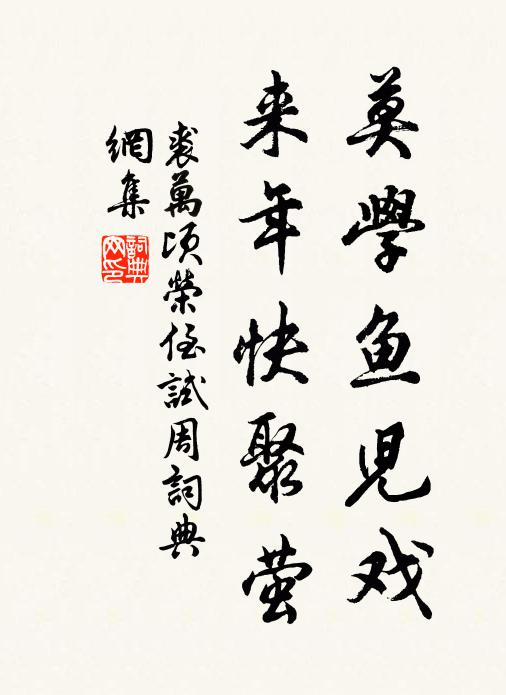 莫學鱼兒戏
来年快聚萤
裘萬頃榮侄試周詞典
網集
詞典網印